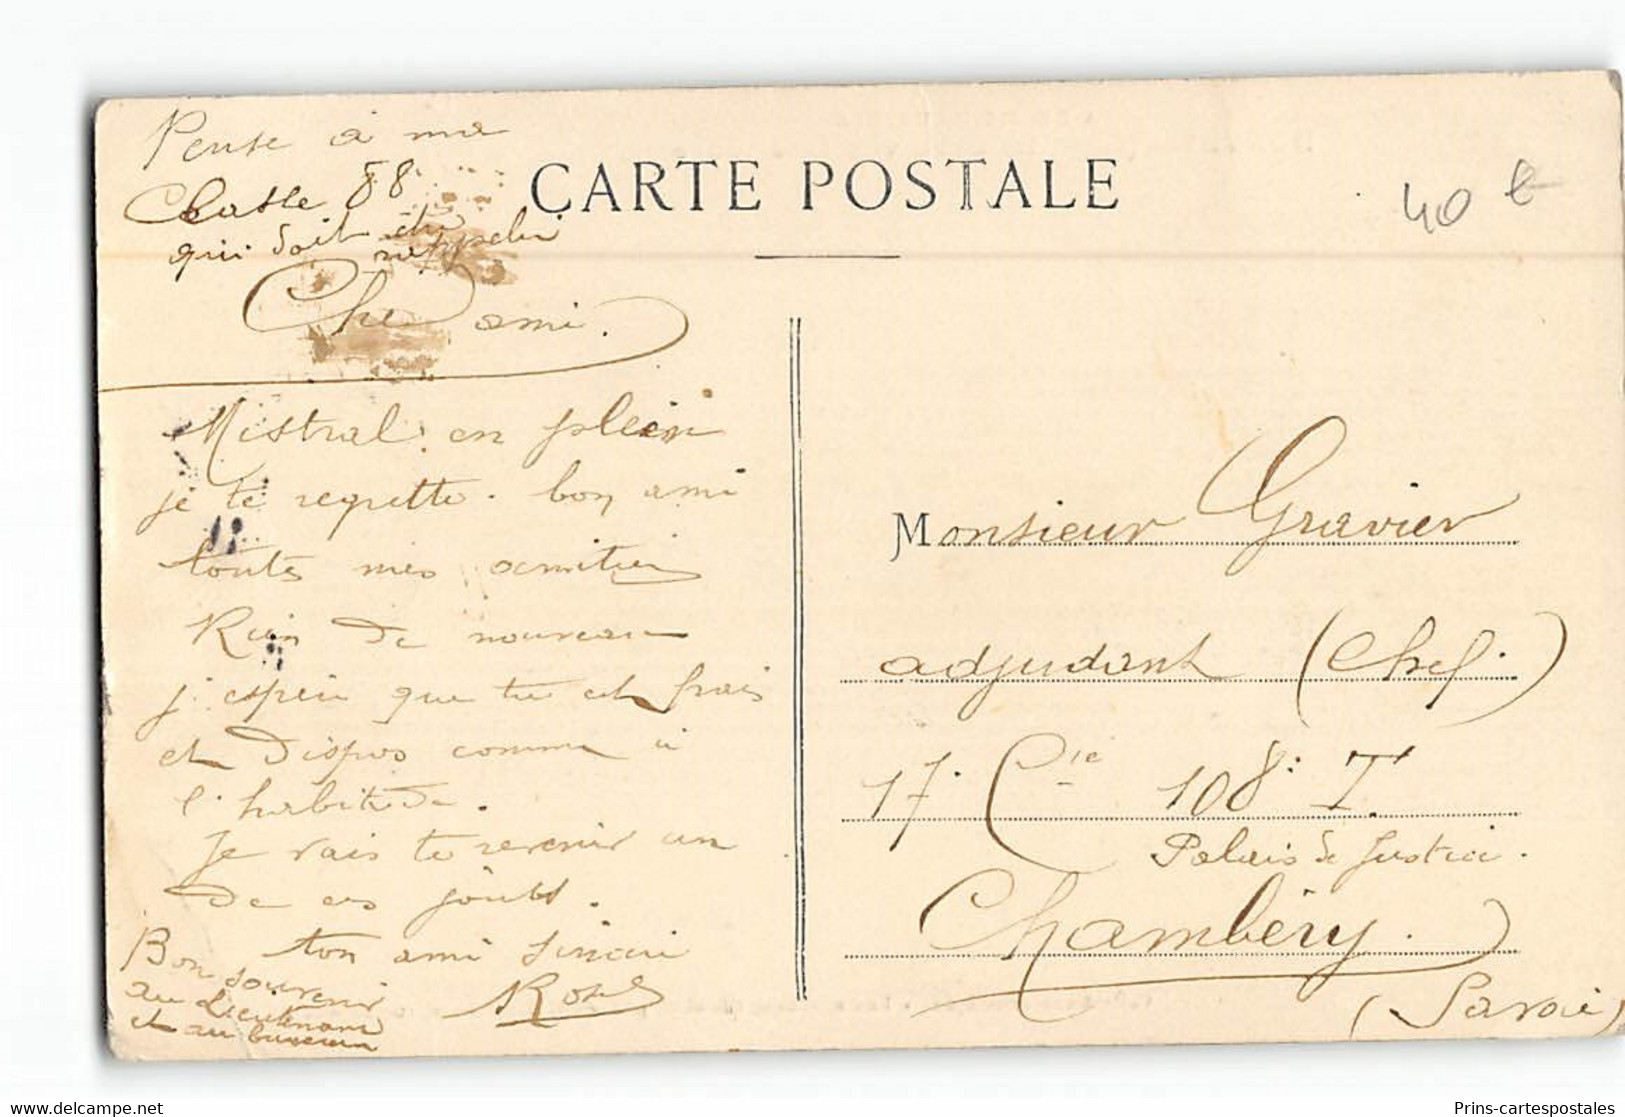 Pense à ma
Classe 88
qui doit être
rappelée
CARTE POSTALE
40 €
Cher ami.
Mistral en plein
je te regrette. bon ami
toutes mes amitiés
Rien de nouveau
j'espère que tu es frais
et dispos comme à
l'habitude.
Je vais te revenir un
de ces jours.
ton ami sincère
Bon souvenir
au Lieutenant
et au bureau
Monsieur Gravier
adjudant (Chef.)
17. Cie 108e T.
Palais de Justice.
Chambéry.
(Savoie)
Prins-cartespostales.com
Prins-cartespostales